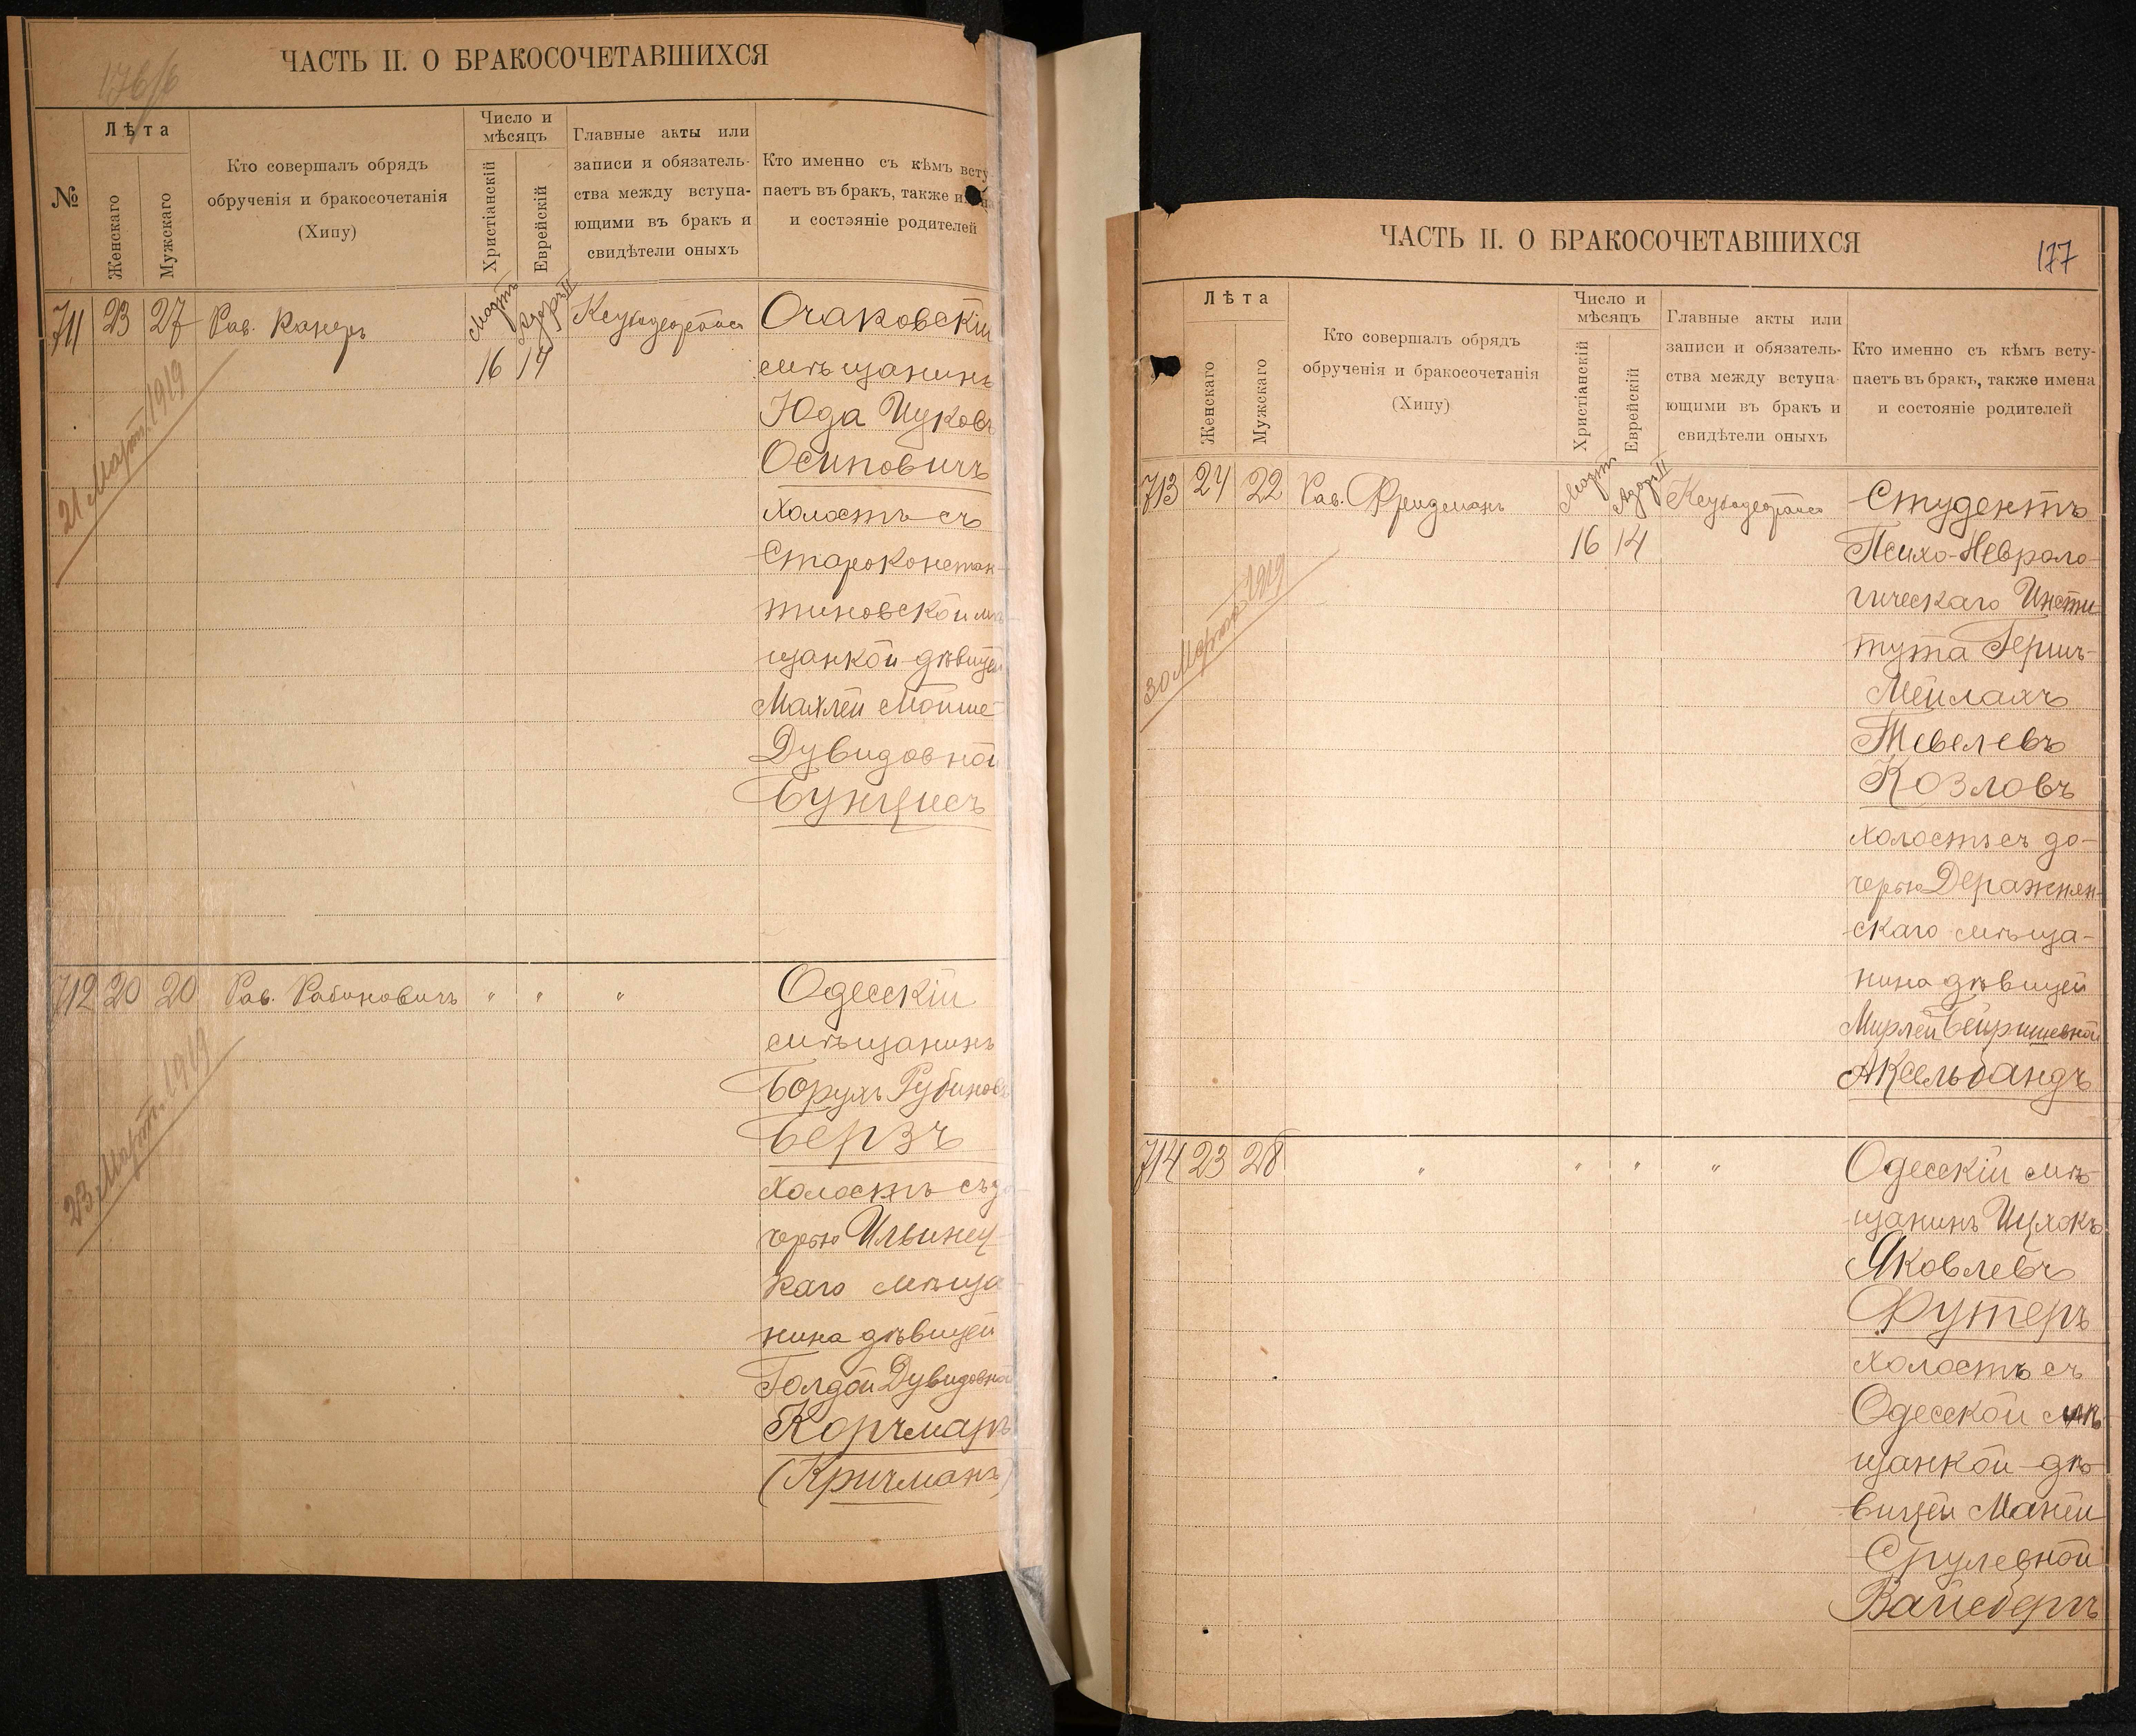 176/б
ЧАСТЬ II. О БРАКОСОЧЕТАВШИХСЯ
№
Лѣта
Женскаго
Мужскаго
Кто совершалъ обрядъ
обрученія и бракосочетанія
(Хипу)
Число и
мѣсяцъ
Христіанскій
Еврейскій
Главные акты или
записи и обязатель-
ства между вступа-
ющими въ бракъ и
свидѣтели оныхъ
Кто именно съ кѣмъ всту
паетъ въ бракъ, также
и состэяніе родителей
711 23 27 Рав. Канеръ
Мартъ Адоръ II
16 14
Очаковскій
мѣщанинъ
Юда Ицковъ
Осиповичъ
холостъ съ
Староконстан-
тиновской мѣ
щанкой-дѣвицей
Махлей Мойше-
Дувидовной
Бунцисъ
21 Март. 1919
712 20 20 Рав. Рабиновичъ " " "
Одесскій
мѣщанинъ
Борухъ Рубиновъ
Берзъ
холостъ съ до
черью Ильинец-
каго мѣща-
нина дѣвицей
Голдой Дувидовной
Корчмаръ
(Кричманъ)
23 Март. 1919
177
ЧАСТЬ II. О БРАКОСОЧЕТАВШИХСЯ
Лѣта
Женскаго
Мужскаго
Кто совершалъ обрядъ
обрученія и бракосочетанія
(Хипу)
Число и
мѣсяцъ
Христіанскій
Еврейскій
Главные акты или
записи и обязатель-
ства между вступа
ющими въ бракъ и
свидѣтели оныхъ
Кто именно съ кѣмъ всту-
паетъ въ бракъ, также имена
и состояніе родителей
713 24 22 Рав. Фридманъ
Мартъ Адоръ II
16 14
Студентъ
Психо-Невроло-
гическаго Инсти-
тута Гершъ-
Мейлахъ
Тевелевъ
Козловъ
холостъ съ до-
черью Деражнян-
скаго мѣща-
нина дѣвицей
Мирлей Бейришевной
Аксельбандъ
30 Март. 1919
714 23 28 " " " "
Одесскій мѣ-
щанинъ Ицхокъ
Яковлевъ
Футеръ
холостъ съ
Одесской мѣ-
щанкой-дѣ-
вицей Маней
Срулевной
Вайсбергъ